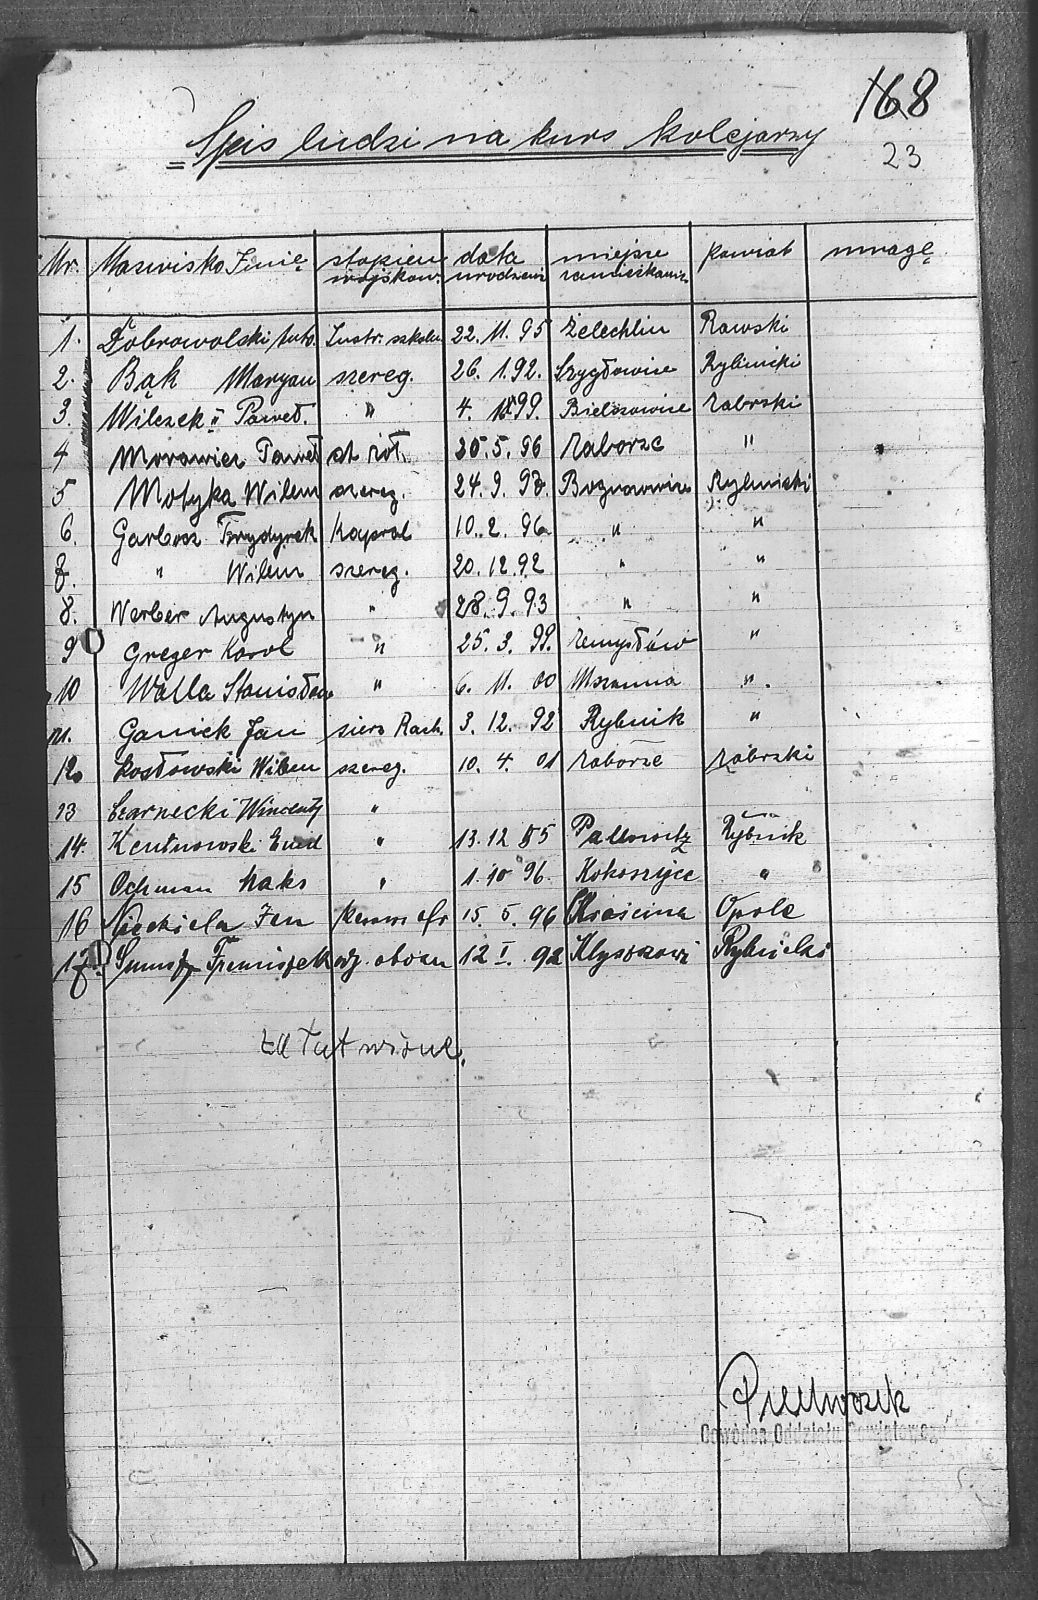 168
23
Spis ludzi na kurs kolejarzy
Nr. Nazwisko Imię stopień wojskow. data urodzeni miejsce zamieszkania powiat uwagę
1. Dobrowolski Anto. Instr. szkoln 22. 11. 95 Żelechlin Rawski
2. Bąk Maryan szereg. 26. 1. 92. Czygłowice Rybnicki
3. Wilczek II Paweł. " 4. 99. Bielszowice Zabrski
4 Morawiec Paweł st. żoł. 20. 5. 96 Zaborze "
5 Motyka Wilem szereg. 24. 9. 98. Boguszowice Rybnicki
6. Garbocz Frydryck Kapral 10. 2. 96 " "
7. " Wilem szereg. 20. 12. 92 " "
8. Werber Augustyn " 28. 9. 93 " "
9 Greger Karol " 25. 3. 99. "
10 Walla Stanisław " 6. 11. 00 Mszanna "
11. Gamick Jan sierz. Rach. 3. 12. 92 Rybnik "
12. Kozłowski Wilem szereg. 10. 4. 01 Zaborze Zabrski
13 Czarnecki Wincenty "
14. " 13. 12 95 Pallowitz Rybnik
15 Ochman Maks " 1. 10 96. Kokoszyce "
16 Jan 15. 5. 96 Opole
17. 12 I. 92 Rybnicki
załatwione.
Dowódca Oddziału Powiatowego